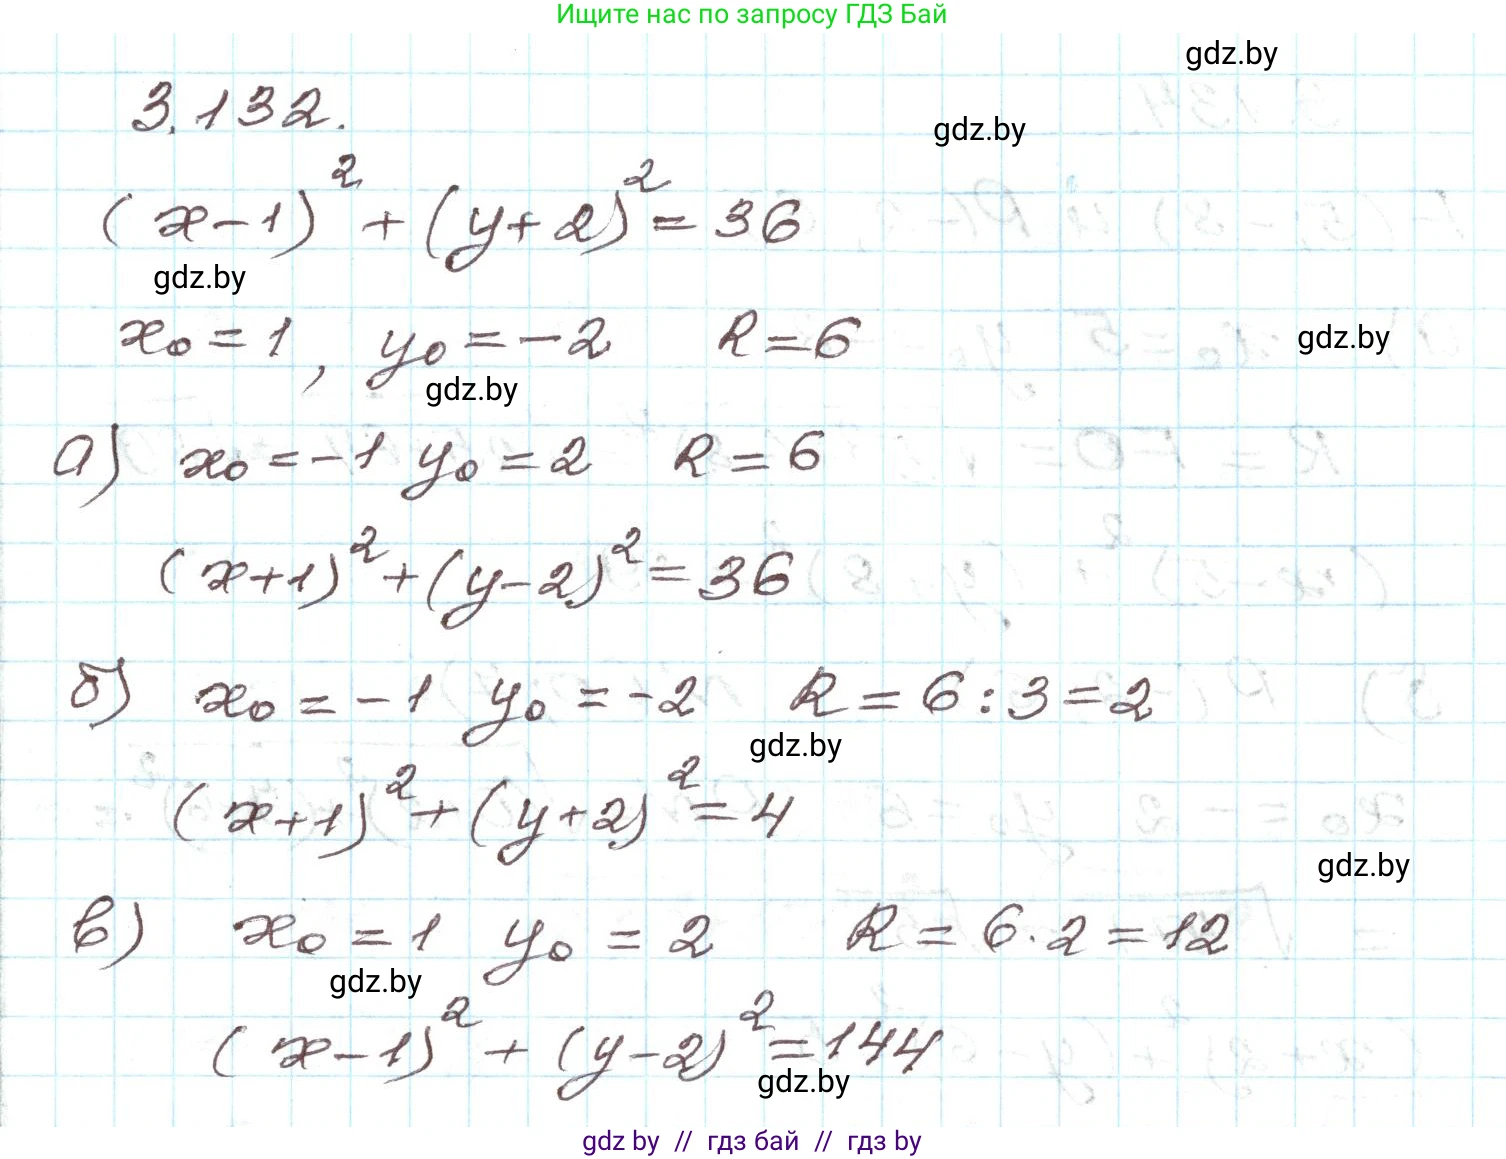 Ищите нас по запросу ГДЗ Бай
gdz.by
3.132.
gdz.by
(x-1)² + (y+2)² = 36
gdz.by
x₀ = 1, y₀ = -2 R = 6
gdz.by
gdz.by
а) x₀ = -1 y₀ = 2 R = 6
(x+1)² + (y-2)² = 36
б) x₀ = -1 y₀ = -2 R = 6 : 3 = 2
gdz.by
(x+1)² + (y+2)² = 4
gdz.by
в) x₀ = 1 y₀ = 2 R = 6 · 2 = 12
gdz.by
(x-1)² + (y-2)² = 144
gdz.by
gdz by // гдз бай // гдз by